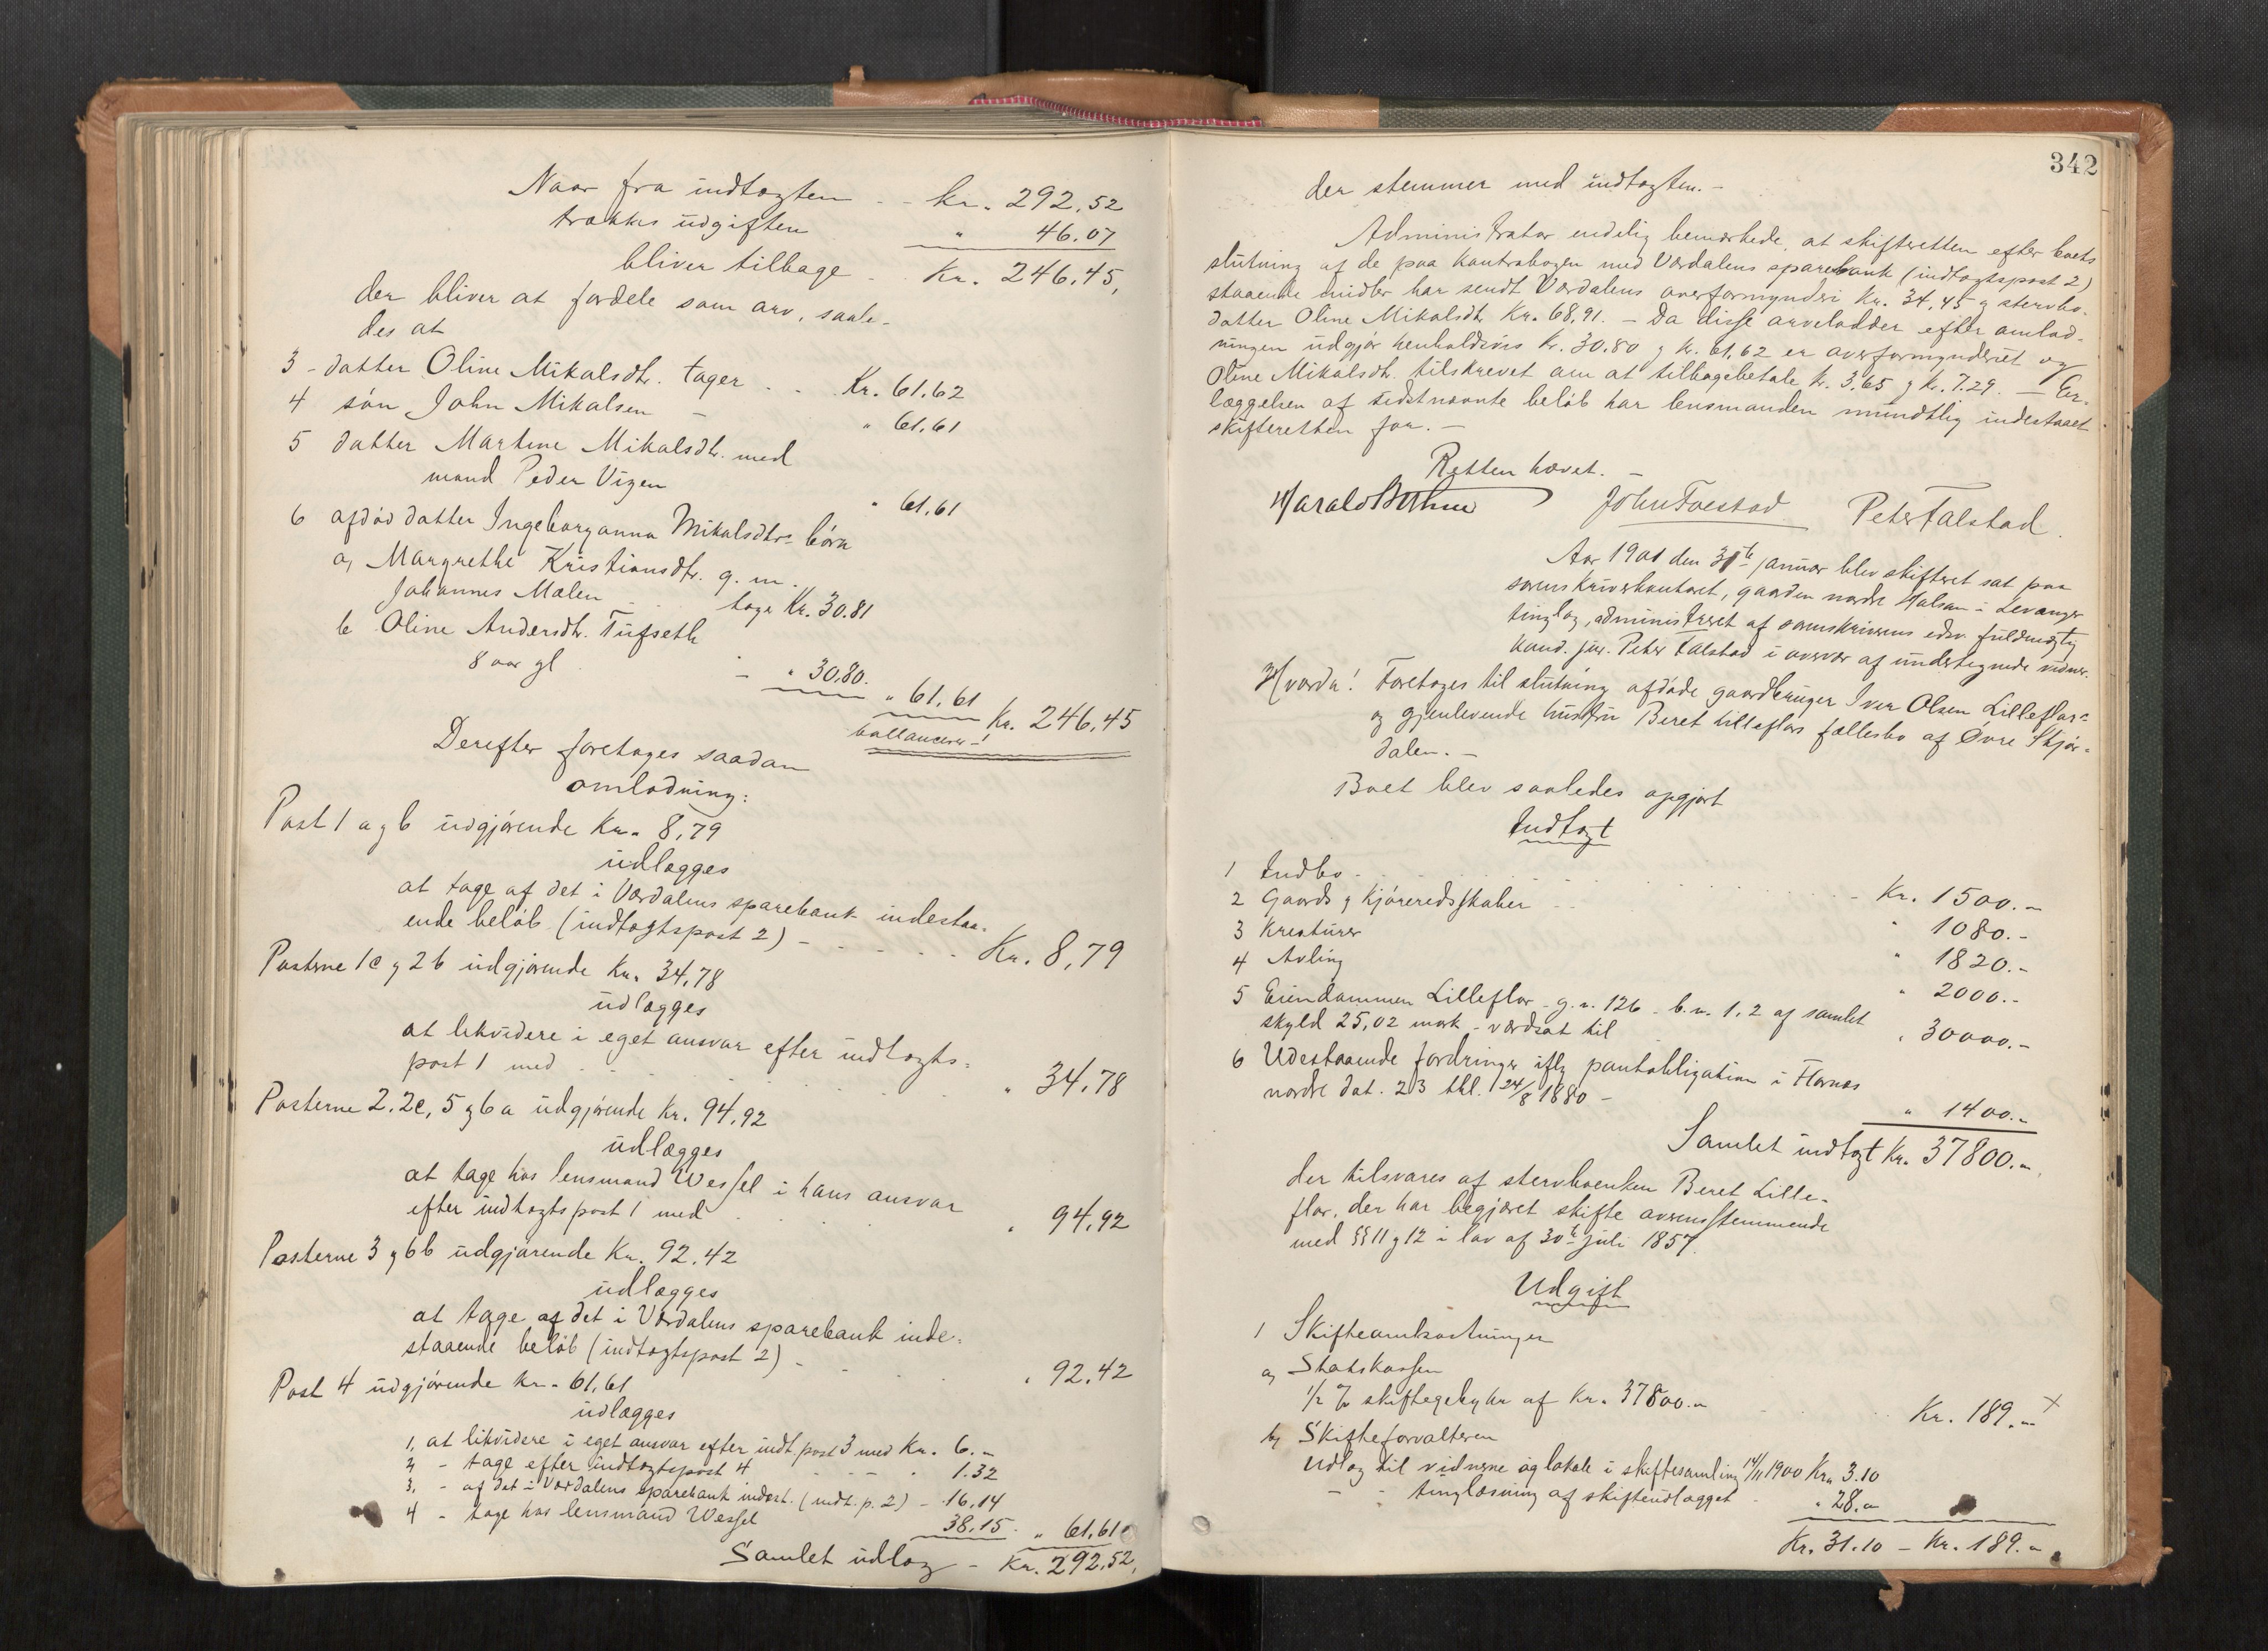 Naar fra indtægten - - Kr. 292.52
trækkes udgiften " 46.07
bliver tilbage - Kr. 246.45,
der bliver at fordele som arv, saale-
des at
3 - datter Oline Mikalsdtr. tager - - Kr. 61.62
4 søn John Mikalsen - " 61.61
5 datter Martine Mikalsdtr. med
mand Peder Vigen " 61.61
6 afdød datter Ingeborganna Mikalsdtrs børn
a, Margrethe Kristiansdtr. g. m.
Johannes Mælen - tage Kr. 30.81
b Oline Andersdtr. Tufseth
8 aar gl - " 30.80.
" 61.61
Kr. 246.45
ballancerer -!
Derefter foretoges saadan
omlodning:
Post 1 a g b udgjørende Kr. 8,79
udlægges
at tage af det i Værdalens sparebank indestaa-
ende beløb (indtægtspost 2) - - - - Kr. 8,79
Posterne 1c g 2b udgjørende Kr. 34,78
udlægges
at likvidere i eget ansvar efter indtægts-
post 1 med - - - " 34.78
Posterne 2.2c, 5 g 6a udgjørende Kr. 94,92
udlægges
at tage hos lensmand Wessel i hans ansvar
efter indtægtspost 1 med - - - " 94,92
Posterne 3 g 6b udgjørende Kr. 92.42
udlægges
at tage af det i Værdalens sparebank inde-
staaende beløb (indtægtspost 2) - - " 92,42
Post 4 udgjørende kr. 61,61
udlægges
1, at likvidere i eget ansvar efter indt. post 3 med Kr. 6.-
2 - tage efter indtægtspost 4 - - " 1.32
3, - af det i Værdalens sparebank indest. (indt. p. 2) - 16,14
4 - tage hos lensmand Wessel 38,15. " 61,61
Samlet udlæg - Kr. 292,52,
342
der stemmer med indtægten. -
Administrator endelig bemærkede, at skifteretten efter boets
slutning af de paa kontrabogen med Værdalens sparebank (indtægtspost 2)
staaende midler har sendt Værdalens overformynderi Kr. 34,45 g stervbo-
datter Oline Mikalsdtr. Kr. 68,91. - Da disse arvelodder efter omlod-
ningen udgjør henholdsvis Kr. 30.80 g kr. 61,62 er overformynderiet og
Oline Mikalsdtr. tilskrevet om at tilbagebetale Kr. 3.65 g Kr. 7.29. - Er-
læggelsen af sidstnævnte beløb har lensmanden mundtlig indestaaet
skifteretten for. -
Retten hævet. -
Harald Bothner John Foestad Peter Falstad.
Aar 1901 den 31te januar blev skifteret sat paa
sorenskriverkontoret, gaarden nordre Halsan i Levanger
tinglag, administreret af sorenskriverens edsv. fuldmægtig
kand. jur. Peter Falstad i overvær af undertegnede vidner.
Hvorda! Foretoges til slutning afdøde gaardbruger Iver Olsen Lilleflors
og gjenlevende hustru Beret Lilleflors fællesbo af Øvre Skjør-
dalen. -
Boet blev saaledes opgjort
Indtægt
1 Indbo - - - Kr. 1500.-
2 Gaards g Kjøreredskaber - - " 1080.-
3 Kreaturer " 1820.-
4 Avling " 2000.-
5 Eiendommen Lilleflor - g. n. 126 - b. n. 1, 2 af samlet
skyld 25,02 mark - værdsat til " 30000.-
6 Udestaaende fordringer iflg pantobligation i Flornes
nordre dat. 23 thl. 24/8 1880 - " 1400.-
Samlet indtægt Kr. 37800.-
der tilsvares af stervboenken Beret Lille-
flor, der har begjæret skifte overensstemmende
med §§ 11 g 12 i lov af 30te juli 1857.
Udgift
1 Skifteomkostninger
a, Statskassen
1/2 % skiftegebyhr af Kr. 37800.- - - Kr. 189.- x
b, Skifteforvalteren
Udlæg til vidnerne og lokale i skiftesamling 14/11 1900 Kr. 3.10
- - tinglæsning af skifteudlægget - " 28.-
Kr. 31.10 - Kr. 189.-